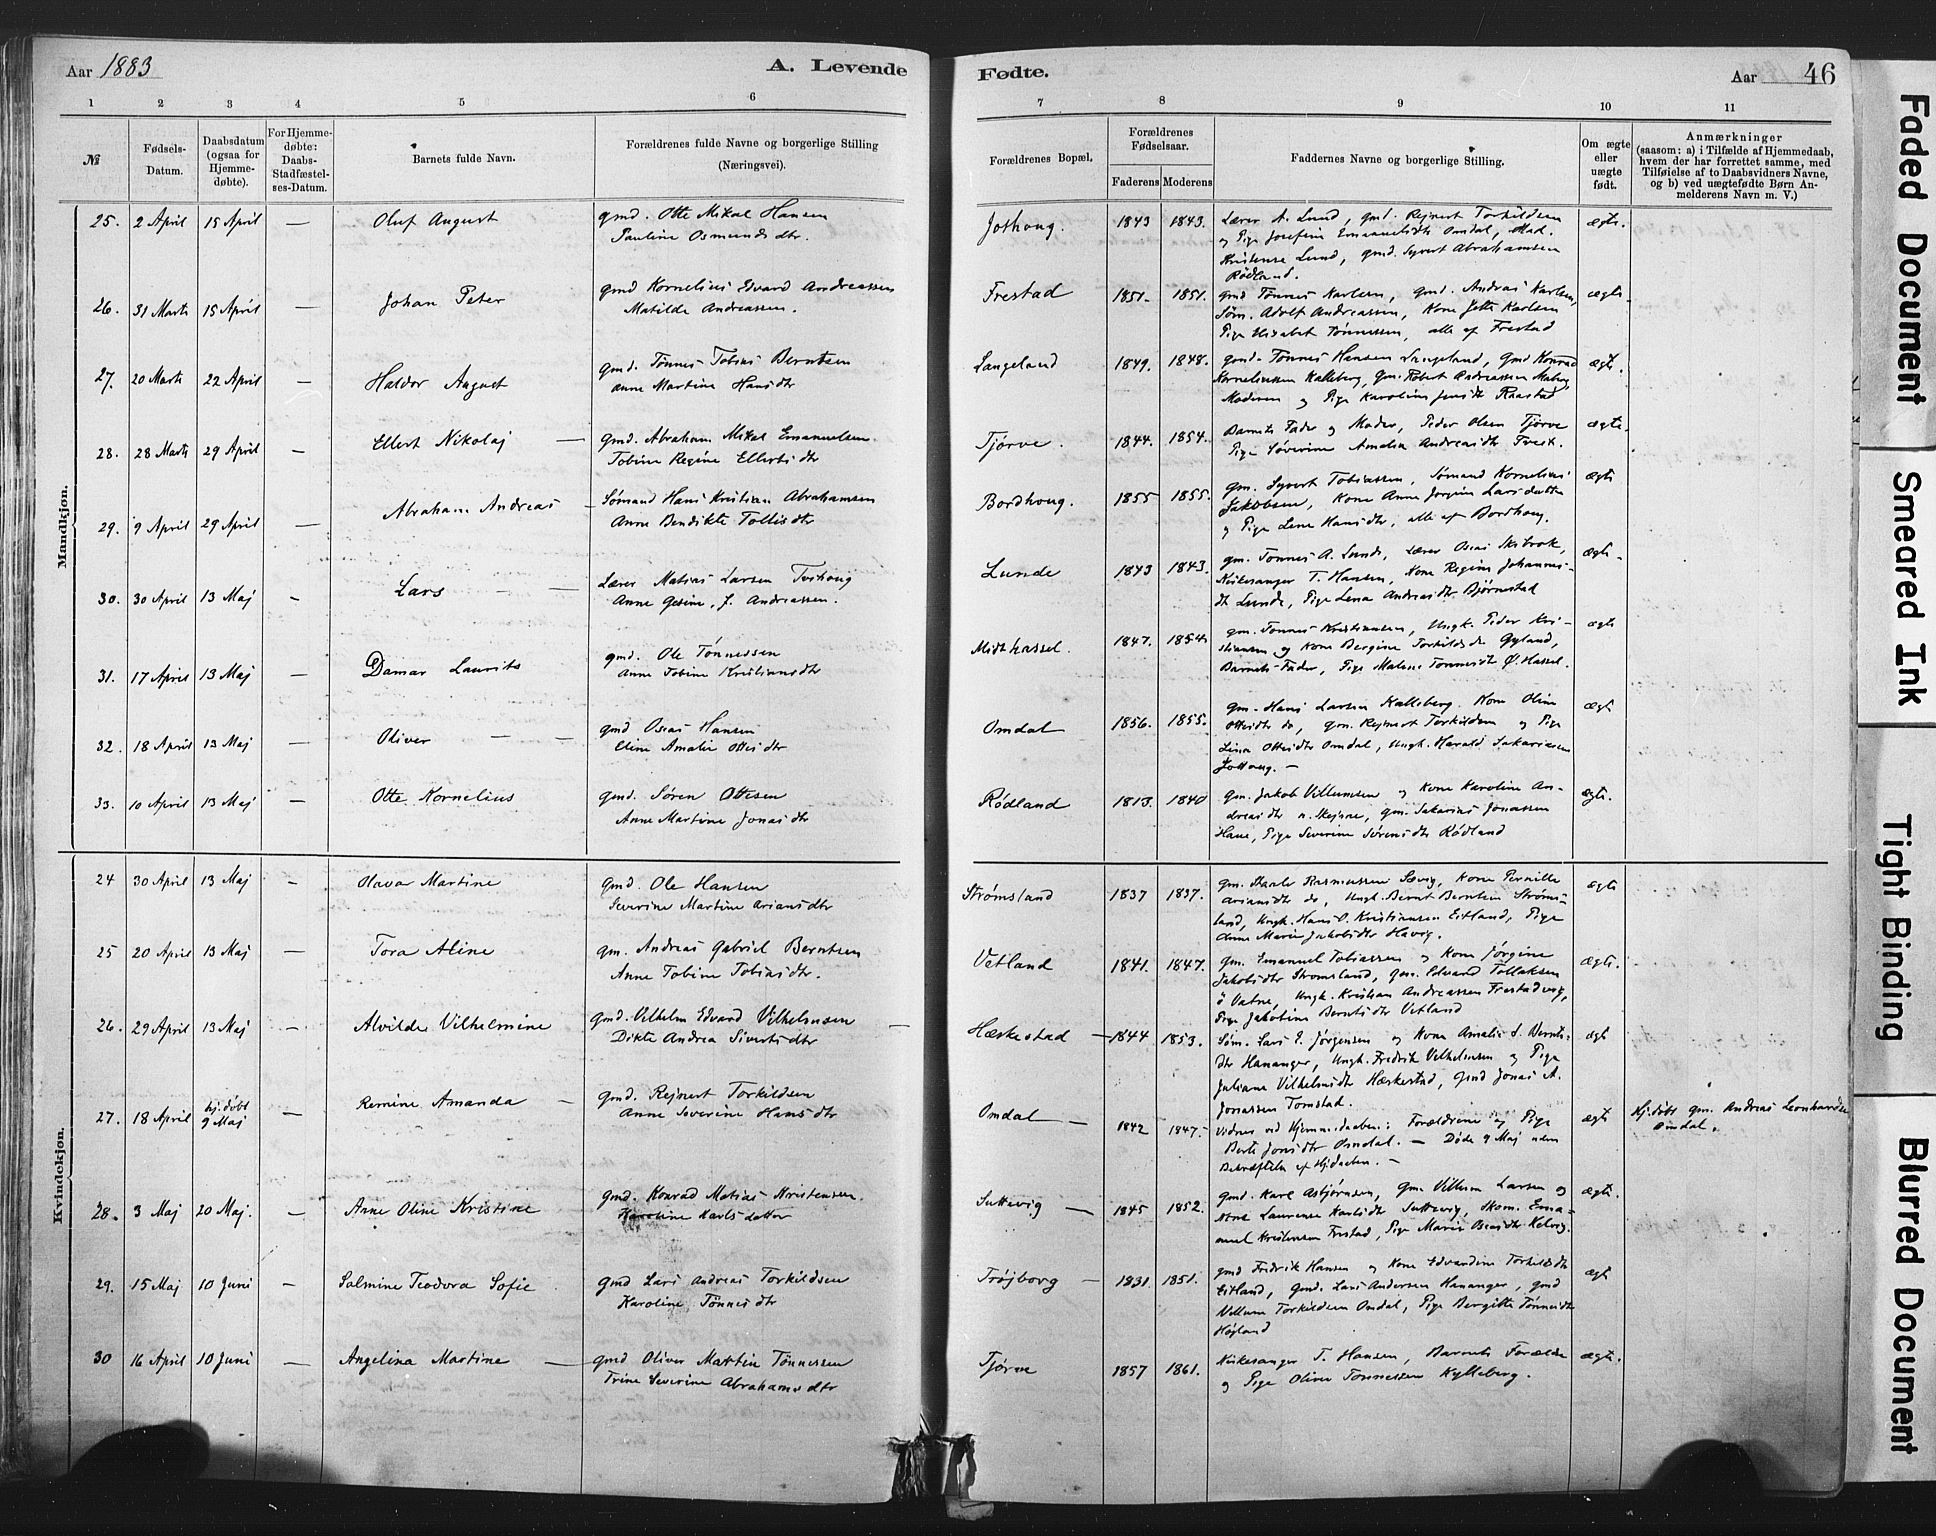 Aar 1883
A. Levende
Fødte.
Aar
46
1 2 3 4 5 6 7 8 9 10 11
№
Fødsels-
Datum.
Daabsdatum
(ogsaa for
Hjemme-
døbte).
For Hjemme-
døbte:
Daabs-
Stadfæstel-
ses-Datum.
Barnets fulde Navn.
Forældrenes fulde Navne og borgerlige Stilling
(Næringsvei).
Forældrenes Bopæl.
Forældrenes
Fødselsaar.
Faderens Moderens
Faddernes Navne og borgerlige Stilling.
Om ægte
eller
uægte
født.
Anmærkninger
(saasom: a) i Tilfælde af Hjemmedaab,
hvem der har forrettet samme, med
Tilføielse af to Daabsvidners Navne,
og b) ved uægtefødte Børn An-
melderens Navn m. V.)
Mandkjøn.
25. 2 April 15 April — Oluf August
gmd. Otte Mikal Hansen
Pauline Osmundsdtr.
Jothoug. 1843 1843.
Lærer A. Lund, gmd. Rejnert Torkildsen
og Pige Josefine Emanuelsdtr Omdal, Mad.
Kristense Lund, gmd. Syvert Abrahamsen
Rødland.
ægte.
26. 31 Marts 15 April — Johan Peter
gmd Kornelius Edvard Andreassen
Matilde Andreassen.
Frestad 1851. 1851.
gmd Tønnes Karlsen, gmd. Andreas Karlsen,
Søm. Adolf Andreassen, Kone Jette Karlsen
Pige Elisabet Tønnessen, alle af Frestad
ægte.
27. 20 Marts 22 April — Haldor August
gmd. Tønnes Tobias Berntsen
Anne Martine Hansdtr
Langeland 1849. 1848.
gmd. Tønnes Hansen Langeland, Gmd Konrad
Korneliussen Kalleberg, Gm. Robert Andreassen
Moderen og Pige Karoline Jensdtr Raastad
ægte.
28. 28 Marts 29 April — Ellert Nikolaj —
gmd. Abraham Mikal Emanuelsen.
Tobine Regine Ellertsdtr
Tjørve. 1844. 1854.
Barnets Fader og Moder, Peder Olsen Tjørve
Pige Søverine Amalia Andreasdtr
ægte.
29. 9 April 29 April — Abraham Andreas —
Sømand Hans Kristian Abrahamsen
Anne Bendikte Tollisdtr
Bordhoug. 1855 1855.
gm. Syvert Tobiassen, Sømand Kornelius
Jakobsen, Kone Anne Jørgine Larsdatter
og Pige Lene Hansdtr, alle af Bordhoug.
ægte
30. 30 April 13 Maj — Lars — —
Lærer Matias Larsen
Anne Gesine, f. Andreassen.
Lunde 1843 1843.
gm. Tønnes A. Lunde, Lærer Oseas Skibrok,
Kirkesanger T. Hansen, Kone Regine Johannes-
dtr Lunde, Pige Lena Andreasdtr Bjørnestad
ægte
31. 17 April 13 Maj — Damar Laurits
gmd. Ole Tønnessen
Anne Tobine Kristiansdtr
Midthassel. 1847. 1854
gm. Tønnes Kristiansen, Ungk. Peder Kri-
stiansen og Kone Bergine Torkildsdtr Gyland,
Barnets Fader, Pige Malene Tønnesdtr Ø. Hassel.
ægte
32. 18 April 13 Maj — Oliver — —
gmd Oseas Hansen
Eline Amalie Ottesdtr
Omdal 1856. 1855.
gm. Hans Larsen Kalleberg. Kone Oline
Ottesdtr do, gm. Rejnert Torkildsen og Pige
Lina Ottesdtr Omdal, Ungk. Harald Sakariasen
Jothoug. —
ægte
33. 10 April 13 Maj — Otte Kornelius
gmd. Søren Ottesen
Anne Martine Jonasdtr
Rødland 1813. 1840
gm. Jakob Villumsen og Kone Karoline An-
dreasdtr n. Skejbne, gm. Sakarias Jonassen
Haue, Pige Severine Sørensdtr Rødland
ægte.
Kvindekjøn.
24 30 April 13 Maj — Olava Martine
gmd. Ole Hansen
Severine Martine Ariansdtr
Strømsland 1837 1837.
gm. Rasmussen Sævig, Kone Pernille
Ariansdtr do, Ungk. Bernt Berntsen Strøms-
land, Ungk. Hans O. Kristiansen Eitland, Pige
Anne Marie Jakobsdtr Haavig.
ægte
25 20 April 13 Maj — Tora Aline
gm. Andreas Gabriel Berntsen
Anne Tobine Tobiasdtr.
Vetland 1841. 1847.
gm. Emanuel Tobiassen og Kone Jørgine
Jakobsdtr Strømsland, gm. Edvard Tollaksen
ö Vatne, Ungk. Kristian Andreassen Frestadvig,
Pige Jakobine Berntsdtr Vetland
ægte.
26. 29 April 13 Maj — Alvilde Vilhelmine
gmd. Vilhelm Edvard Vilhelmsen —
Dikte Andrea Sivertsdtr
Hæskestad — 1844 1853.
Søm. Lars E. Jørgensen og Kone Amalie S. Bernts-
dtr Hananger, Ungk. Fredrik Vilhelmsen og Pige
Juliane Vilhelmsdtr Hæskestad, gmd Jonas A.
Jonassen Tomstad.
ægt
27. 18 April hj.døbt 9 Maj — Remine Amanda —
gmd. Rejnert Torkildsen
Anne Severine Hansdtr
Omdal — 1842 1847.
Vidner ved Hjemmedaaben: Forældrene og Pige
Berte Jonsdtr Omdal. — Døde 9 Maj uden
Bekræftelse af Hjdaaben. —
ægte
Hj.døbt gm. Andreas Leonhardsen
Omdal.
28. 3 Maj 20 Maj. — Anne Oline Kristine
gmd. Konrad Matias Kristensen.
Karoline Karlsdatter
Suttevig — 1845 1852.
gmd. Karl Asbjørnsen, Gm. Villum Larsen og
Kone Laurense Karlsdtr Suttevig, Skom. Ema-
nuel Kristensen Frestad, Pige Marie Oseasdtr Kelvig.
ægte.
29. 15 Maj 10 Juni — Salmine Teodora Sofie
gmd Lars Andreas Torkildsen
Karoline Tønnesdtr
Trøjborg — 1831. 1851.
gmd Fredrik Hansen og Kone Edvardine Torkildsdtr
Eitland, Gmd. Lars Andersen Hananger, gmd
Villum Torkildsen Omdal, Pige Bergitte Tønnesdtr
Højland
ægt
30 16 April 10 Juni — Angelina Martine —
gmd Oliver Martin Tønnessen
Trine Severine Abrahamsdtr
Tjørve 1857 1861.
Kirkesanger T. Hansen, Barnets Forældre
og Pige Olivia Tønnessen Kylleberg.
ægte.
Faded Document
Smeared Ink
Tight Binding
Blurred Document